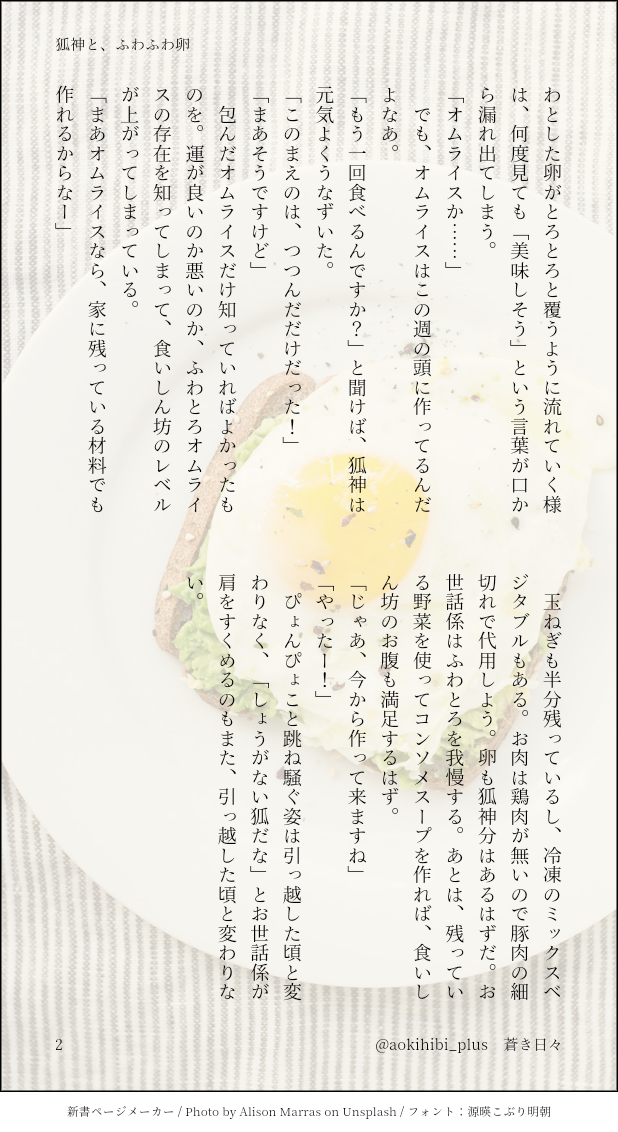 狐神と、ふわふわ卵
わとした卵がとろとろと覆うように流れていく様
は、何度見ても「美味しそう」という言葉が口か
ら漏れ出てしまう。
「オムライスか……」
でも、オムライスはこの週の頭に作ってるんだ
よなあ。
「もう一回食べるんですか？」と聞けば、狐神は
元気よくうなずいた。
「このまえのは、つつんだだけだった！」
「まあそうですけど」
包んだオムライスだけ知っていればよかったも
のを。運が良いのか悪いのか、ふわとろオムライ
スの存在を知ってしまって、食いしん坊のレベル
が上がってしまっている。
「まあオムライスなら、家に残っている材料でも
作れるからなー」
玉ねぎも半分残っているし、冷凍のミックスベ
ジタブルもある。お肉は鶏肉が無いので豚肉の細
切れで代用しよう。卵も狐神分はあるはずだ。お
世話係はふわとろを我慢する。あとは、残ってい
る野菜を使ってコンソメスープを作れば、食いし
ん坊のお腹も満足するはず。
「じゃあ、今から作って来ますね」
「やったー！」
ぴょんぴょこと跳ね騒ぐ姿は引っ越した頃と変
わりなく、「しょうがない狐だな」とお世話係が
肩をすくめるのもまた、引っ越した頃と変わりな
い。
2
@aokihibi_plus 蒼き日々
新書ページメーカー / Photo by Alison Marras on Unsplash / フォント：源暎こぶり明朝